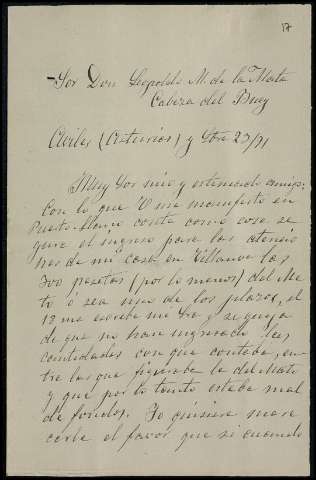 17
Sor Don Leopoldo M. de la Mata
Cabeza del Buey
Aviles (Asturias) y Gbre 23/91
Muy Sor mio y estimado amigo:
Con lo que V me manifesto en
Puerto-llano conte como cosa se
gura el ingreso para las atencio
nes de mi casa en Villanva las
300 pesetas (por lo menos) del Ma
to o sea uno de los plazos, el
12 me escribe mi Sra y se queja
de que no han ingresado las
cantidades con que contaba, en
tre las que figuraba la del Mato
y que por lo tanto estaba mal
de fondos. Yo quisiera mere
cerle el favor que si cuando